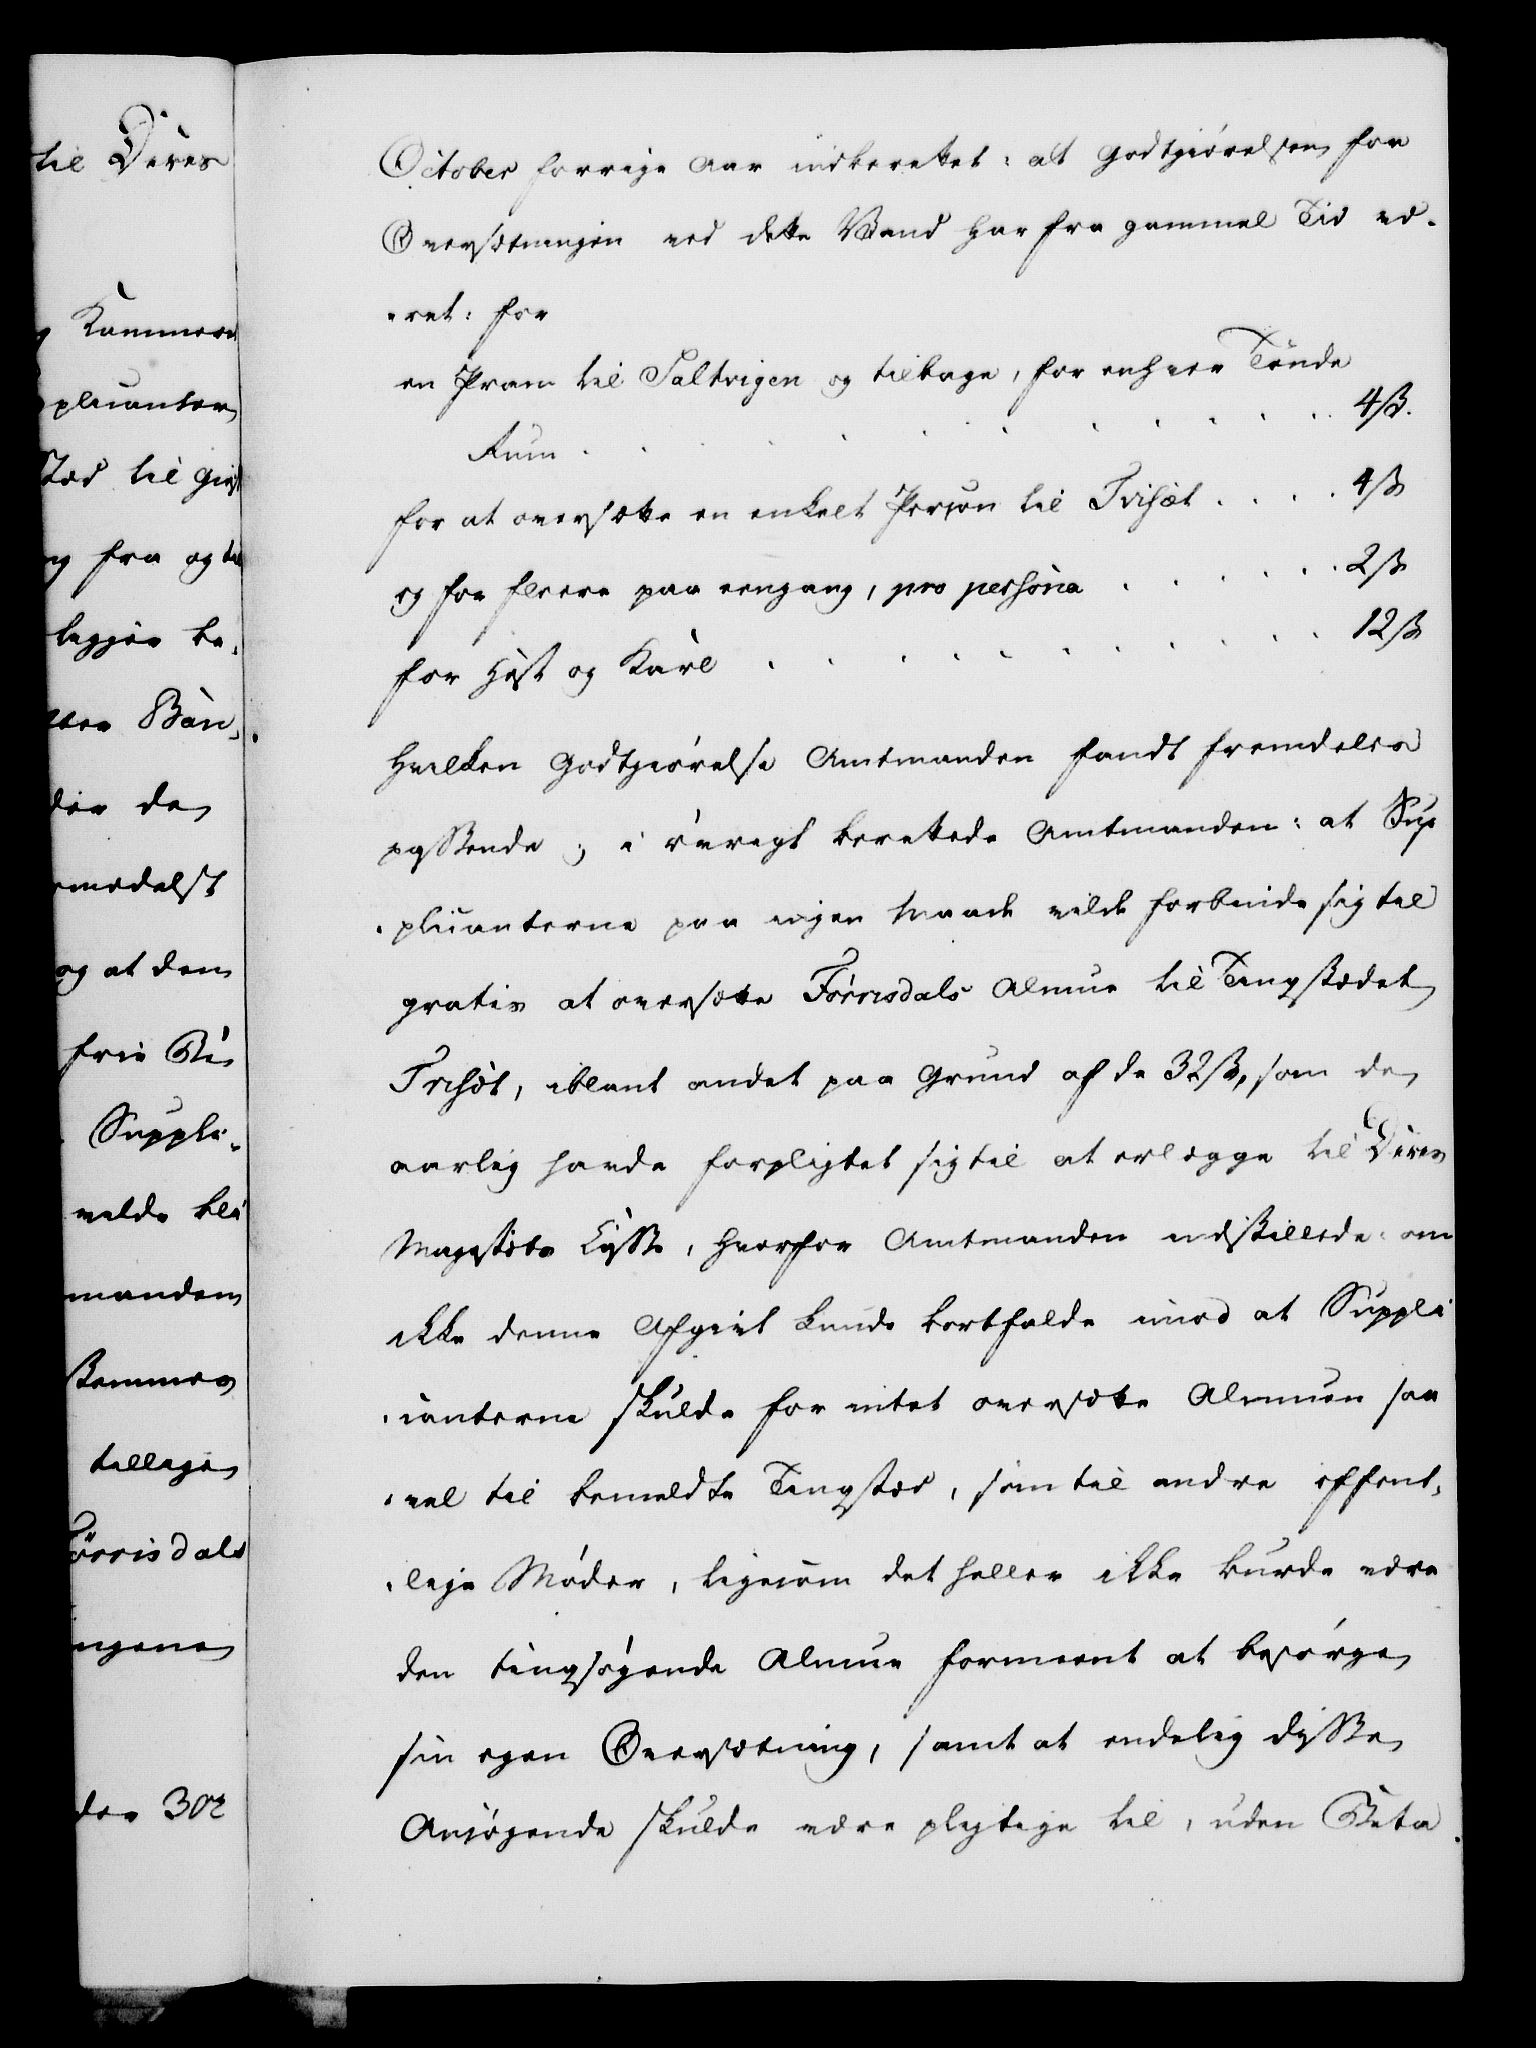 til Deres
Kammere
plicanter
stæd til Giest
og fra og til
begger be-
Bøn-
der de
rmedelst
og at den
frie
Suppli-
velde bli
manden
stemmes
tillige
Tørrisdals
ingene
den 30te
October forrige Aar indberettet: at Godtgiørelsen for
Oversætningen ved dette Vand har fra gammel Tid væ-
-ret: for
en Pram til Saltvigen og tilbage, for enhver Tønde
Rum . . . . . . . . . . 4 ß.
for at oversætte en enkelt Person til Tvisæt . . . . 4 ß
og for fleere paa eengang, pro persona . . . . . . 2 ß
for Hest og Karl . . . . . . . . . 12 ß
hvilken Godtgiørelse Amtmanden fandt fremdeles
passende; i øvrigt berettede Amtmanden: at Sup
-plicanterne paa ingen Maade vilde forbinde sig til
gratis at oversætte Tørrisdals Almue til Tingstædet
Tvisæt, iblant andet paa Grund af de 32 ß, som de
aarlig havde forpligtet sig til at erlægge til Deres
Majestæts Casse, hvorfor Amtmanden indstillede: om
ikke denne Afgivt kunde bortfalde imod at Suppli
-canterne skulde for intet oversætte Almuen saa
-vel til bemeldte Tingstæd, som til andre offent-
-lige Møder, ligesom det heller ikke burde være
den tingsøgende Almue formeent at besørge
sin egen Oversætning, samt at endelig disse
Ansøgende skulde være pligtige til, uden Beta